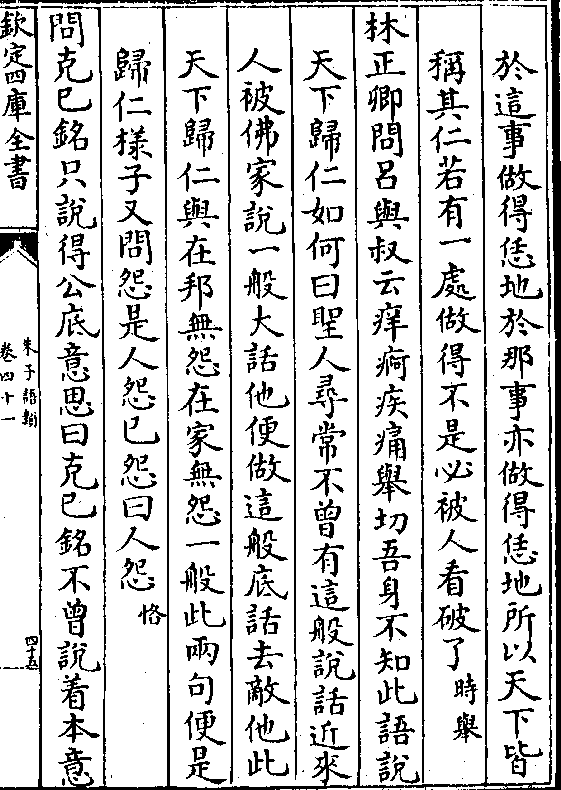 於這事做得恁地於那事亦做得恁地所以天下皆
稱其仁若有一處做得不是必被人看破了時舉
林正卿問呂與叔云痒痾疾痛舉切吾身不知此語說
天下歸仁如何曰聖人尋常不曾有這般說話近來
人被佛家說一般大話他便做這般底話去敵他此
天下歸仁與在邦無怨在家無怨一般此兩句便是
歸仁樣子又問怨是人怨已怨曰人怨恪
問克已銘只說得公底意思曰克已銘不曾說着本意
欽定四庫全書
朱子語類
卷四十一
四十五